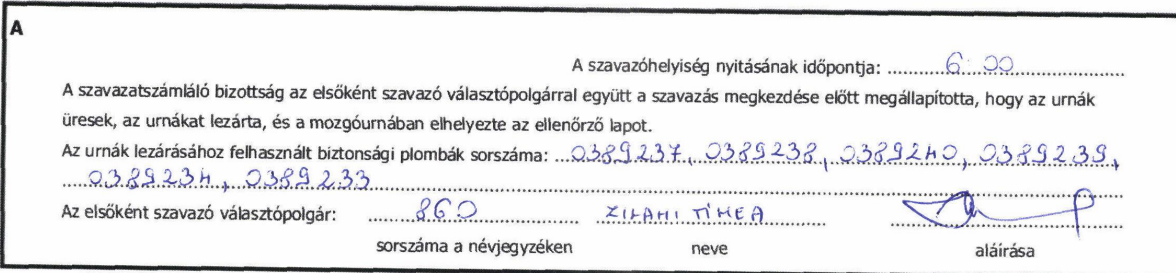 A
A szavazóhelyiség nyitásának időpontja: 6:00
A szavazatszámláló bizottság az elsőként szavazó választópolgárral együtt a szavazás megkezdése előtt megállapította, hogy az urnák
üresek, az urnákat lezárta, és a mozgóurnában elhelyezte az ellenőrző lapot.
Az urnák lezárásához felhasznált biztonsági plombák sorszáma: 0389237, 0389238, 0389240, 0389239,
0389234, 0389233
Az elsőként szavazó választópolgár: 860 ZILAHI TÍMEA
sorszáma a névjegyzéken neve aláírása